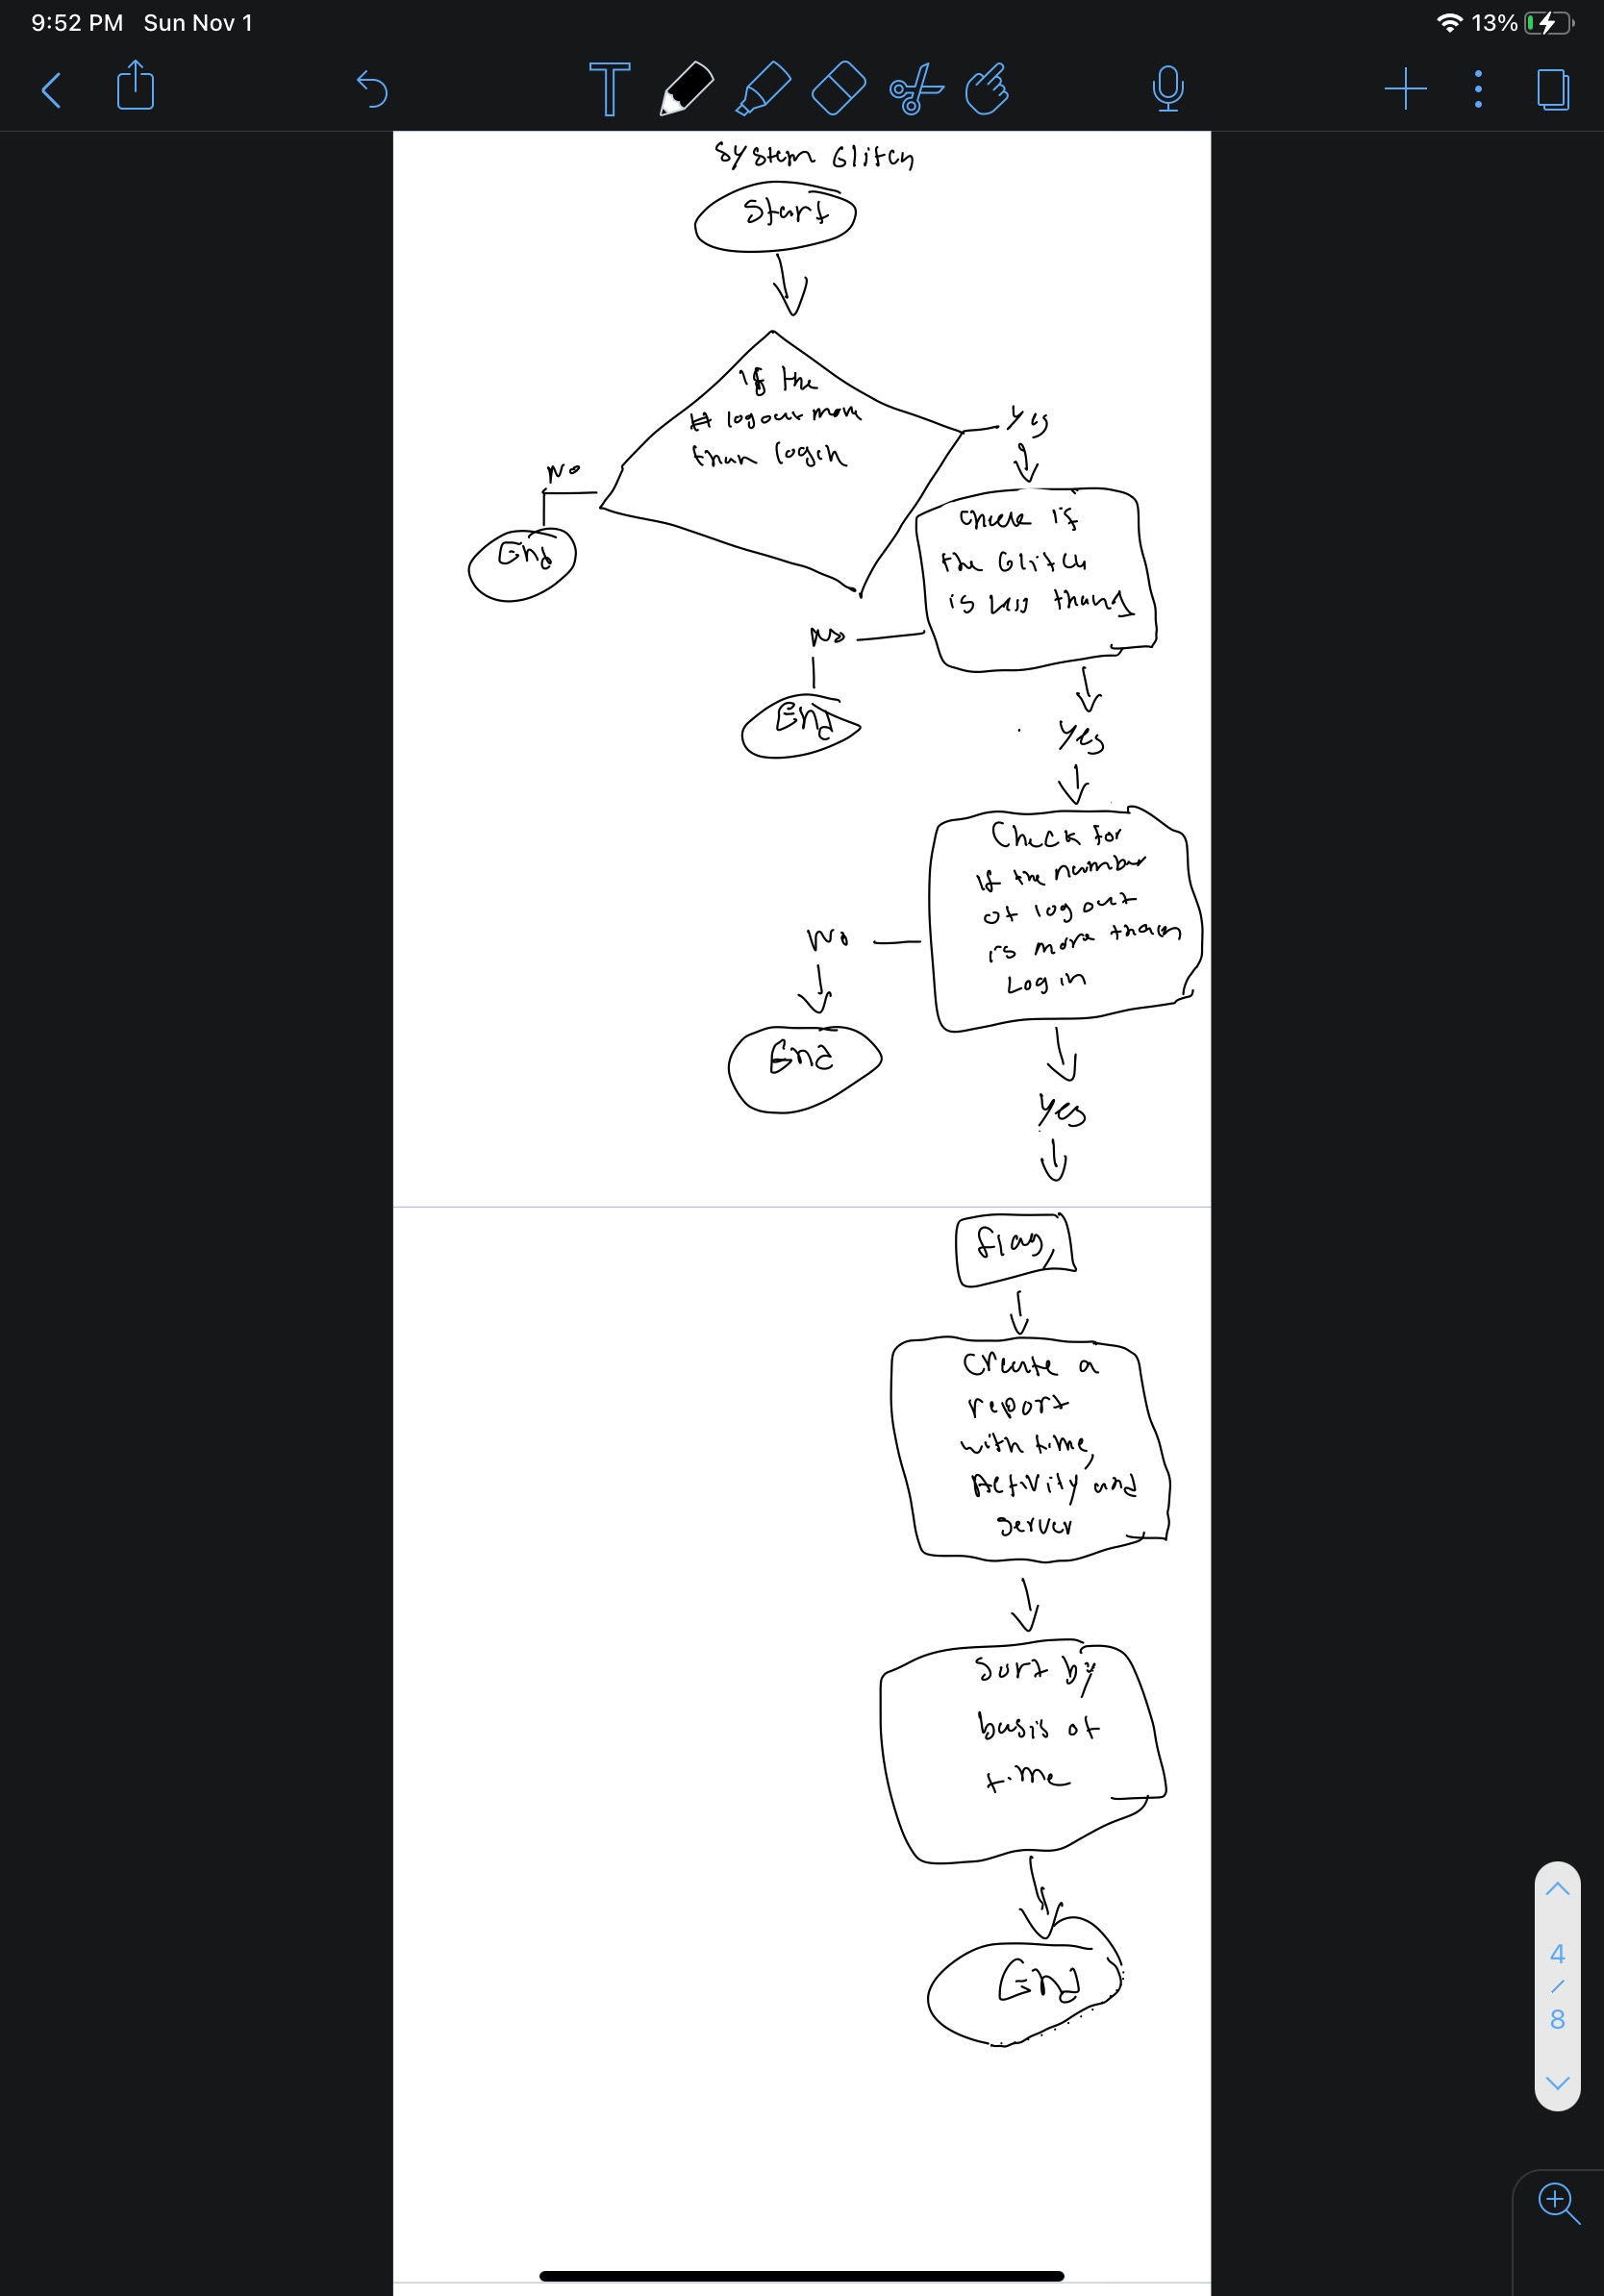 9:52 PM Sun Nov 1
13%
T
System Glitch
Start
If the
# logout more
than login
Yes
No
End
Check if
the Glitch
is less than 1
No
End
Yes
Check for
if the number
of log out
is more than
Log in
No
End
Yes
flag
Create a
report
with time,
Activity and
server
Sort by
basis of
time
End
4
/
8